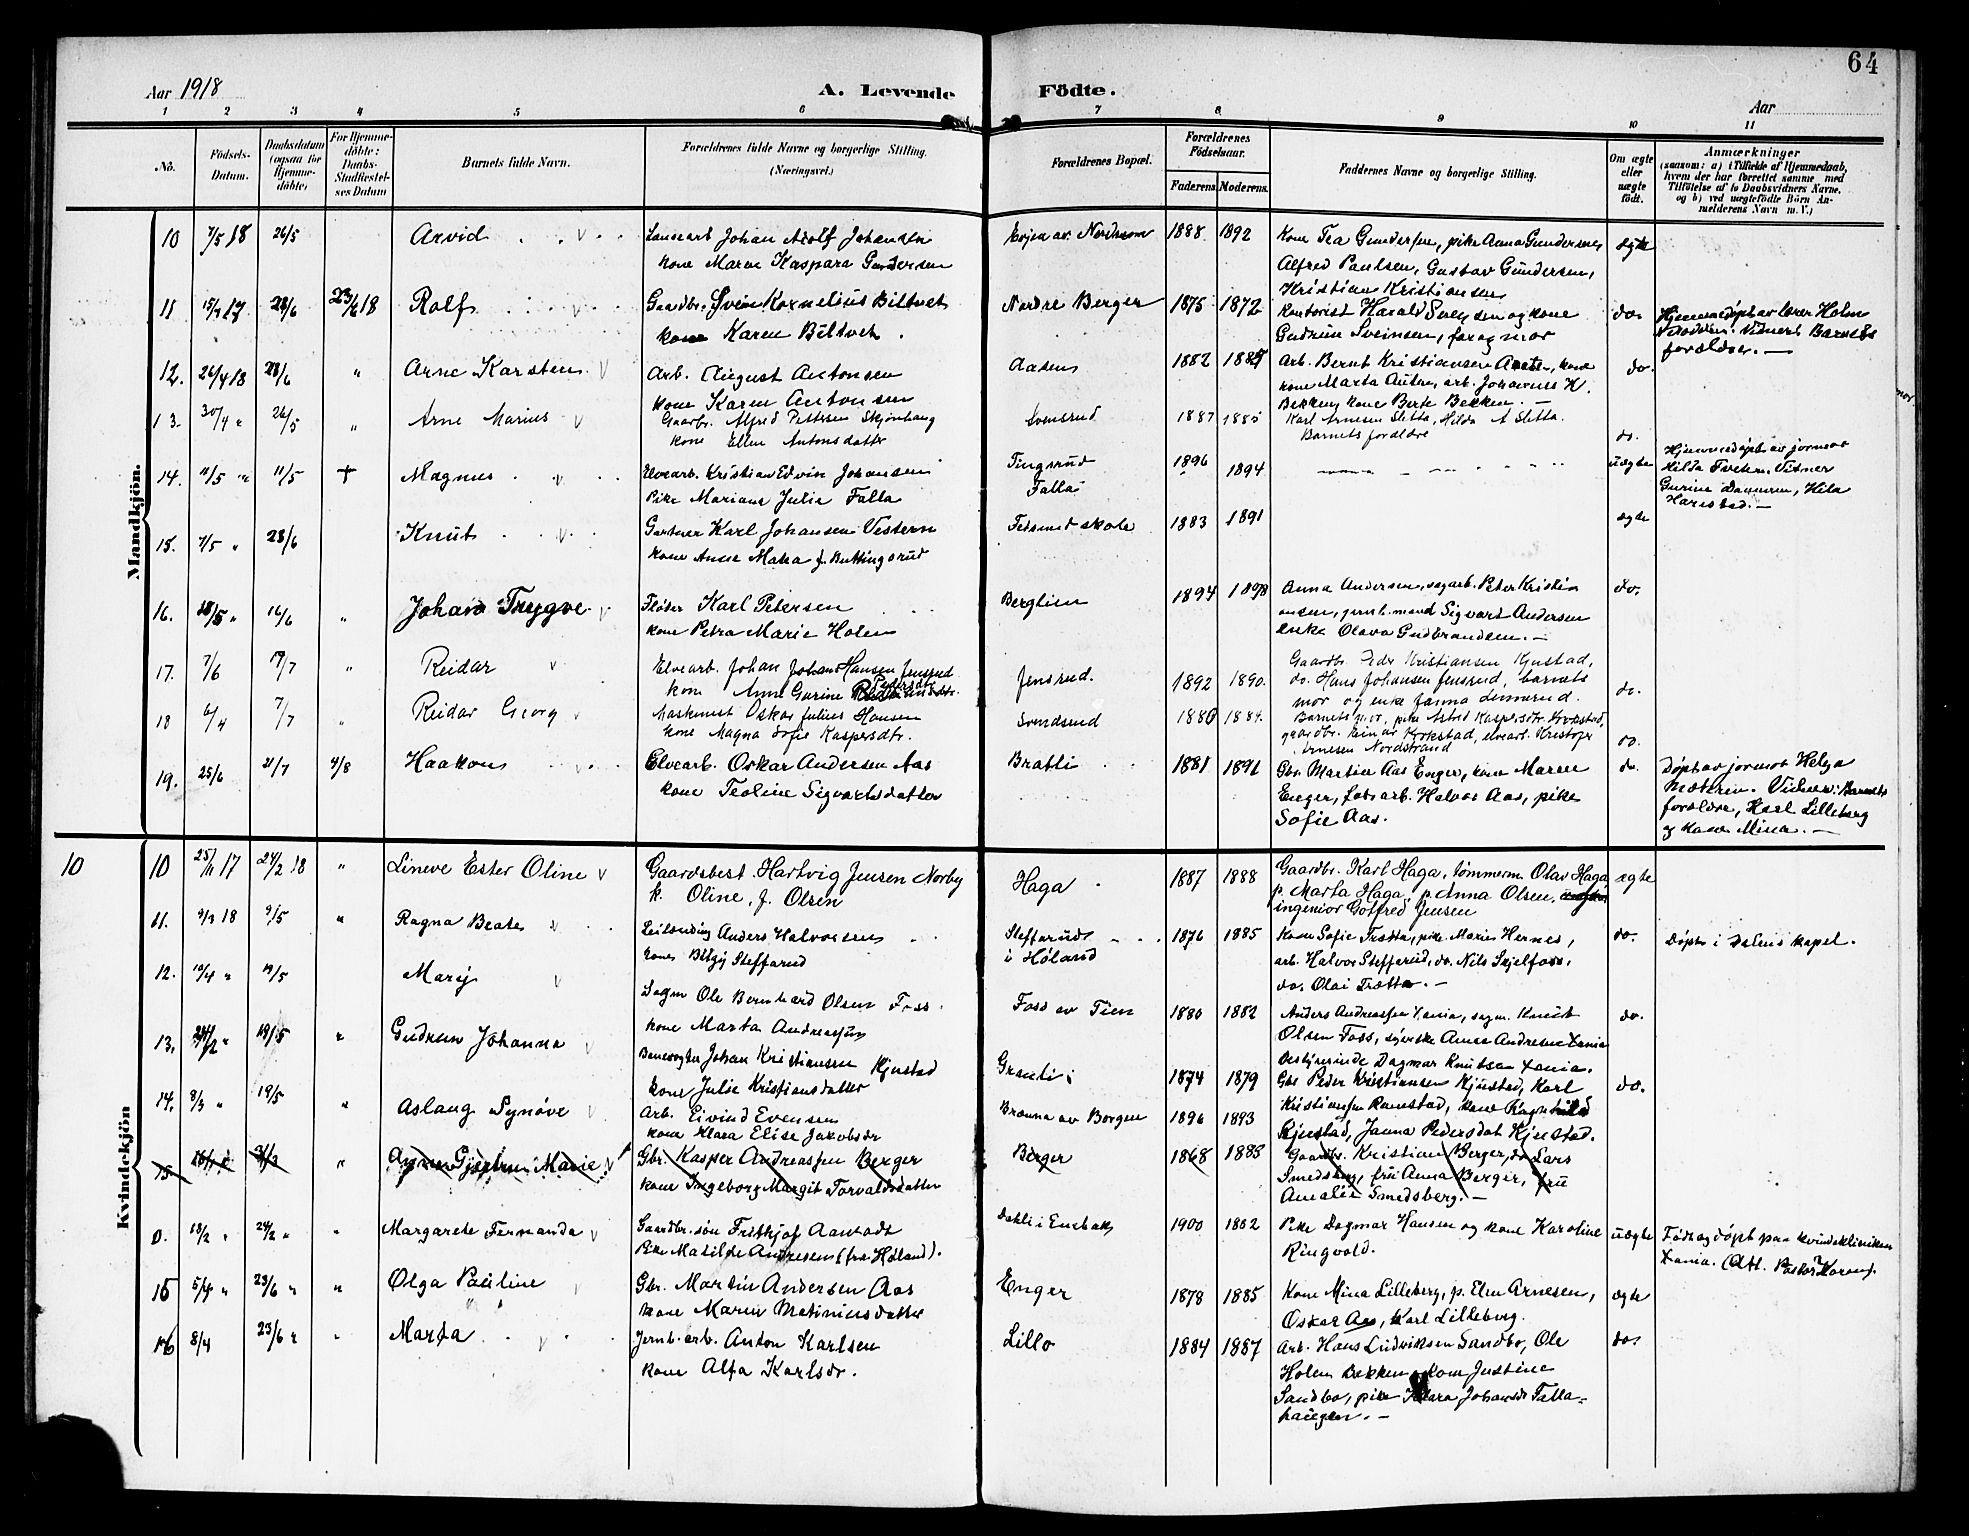 64
Aar 1918
A. Levende Födte.
Aar
1 2 3 4 5 6 7 8 9 10 11
No.
Födsels-Datum.
Daabsdatum (ogsaa for Hjemme-döbte)
For Hjemme-döbte: Daabs-Stadfæstel-ses Datum
Barnets fulde Navn.
Forældrenes fulde Navne og borgerlige Stilling. (Næringsvei.)
Forældrenes Bopæl.
Forældrenes Födselsaar.
Faderens. Moderens.
Faddernes Navne og borgerlige Stilling.
Om ægte eller uægte födt.
Anmærkninger
(saasom: a) i Tilfælde af Hjemmedaab,
hvem der har forrettet samme med
Tilföielse af to Daabsvidners Navne.
og b) ved uægtefödte Börn An-
melderens Navn m. V.)
Mandkjön.
10 7/5 18 26/5 Arvid Johan Adolf Johansen 1888 1892 Kone Tea Gundersen, pike Anna Gundersen ægte
kone Maren Kaspara Gundersen Alfred Paulsen, Gustav Gundersen,
Kristian Kristiansen
11 28/6 23/6 18 Rolf Gaardbr. Svein Kornelius Biltvet Nordre Berger 1875 1872 Kontorist Harald Svendsen og kone do. Hjemmedöpt av lærer Holm
kone Karen Biltvet. Gudrun Sveinsen, far og mor Vidner: Barnets
forældre. —
12. 26/4 18 23/6 " Arne Karsten Arb. August Antonsen Aasen 1882 Arb. Bernt Kristiansen kone do.
kone Karen Antonsen kone Marta arb. Johannes K.
Bekken, kone Berte Bekken. —
13. 30/4 " 26/5 " Arne Marius Gaardbr. Alfred Pettersen Skjönhaug Svensrud 1887 1885 Karl Arnesen Sletta, Hilda A Sletta. do.
kone Ellen Antonsdatter Barnets forældre
14. 11/5 " 11/5 + Magnus Elvearb. Kristian Edvin Johansen Tingsrud 1896 1894 uægte Hjemmedöpt av jormor
Pike Mariane Julie Falla Falla Hilda Vidner
Gurine Hilda
Harestad. —
15. 7/5 " 28/6 Knut Gartner Karl Johansen Vestern skole 1883 1891 ægte
kone Anna f. Buttingsrud
16. 28/5 " 16/6 " Johan Trygve Flöter Karl Petersen Berglien 1894 1898 Anna Andersen, sagarb. Peter Kristi do.
kone Petra Marie Holen ansen, jernb.mand Sigvart Andersen
enke Olava Gudbrandsen. —
17. 7/6 " Reidar Elvearb. Johan Johan Hansen Jensrud Jensrud. 1892 1890. Gaardbr. Peder Kristiansen Kjustad, do.
kone Anne Gurine Pedersdtr. do. Hans Johansen Jensrud, barnets
mor og enke
18 6/4 7/7 " Reidar Georg Maskinist Oskar Julius Hansen Svendsrud 1880 1884. Barnets mor, pike Astrid Kaspersdtr. Kirkstad, do.
kone Magna Sofie Kaspersdtr. gaardbr. Einar Kirkstad, elvearb. Kristofer
Arnesen Nordstrand
19. 25/6 21/7 4/8 Haakon Elvearb. Oskar Andersen Aas Bratli 1881 1891 Gbr. Martin Aas Enger, kone Maren do. Döpt av jormor Helga
kone Teoline Sigvartsdatter Enger, arb. Halvor Aas, pike Vidner: Barnets
Sofie Aas. forældre, Karl Lilleberg
og kone Mina. —
Kvindekjön
10 10 25/11 17 24/2 18 " Lineve Ester Oline Gaardsbest. Hartvig Jensen Norby Haga 1887 1888 Gaardbr. Karl Haga, tömmerm. Olav Haga ægte
k. Oline, f. Olsen p. Marta Haga, p. Anna Olsen,
ingeniör Gotfred Jensen
11. 9/3 18 9/5 " Ragna Beate Leilending Anders Halvorsen Stefferud 1876 1885 Kone Sofie Trætta, pike Marie Hernes, do. Döpt i Dalens kapel.
kone Stefferud i Höland arb. Halvor Stefferud, do. Nils Skjelfoss,
do. Olai Trætta. —
12. 19/4 " 19/5 Mary Sagm Ole Bernhard Olsen Foss. Foss av Tien 1880 1882 Anders Andreassen Xania, sagm. Knut do.
kone Marta Andreassen Olsen Foss, syerske Anna Andresen Xania
Bestyrerinde Dagmar Knutsen Xania.
13. 24/2 " 19/5 " Gudrun Johanna Banevogter Johan Kristiansen Kjustad Granli 1874 1879 Gbr Peder Kristiansen Kjustad, Karl do.
kone Julie Kristiansdatter Kristiansen kone Ragnhild
Kjustad, Janna Pedersdat Kjustad.
14. 8/3 " 19/5 " Aslaug Synöve Arb. Eivind Evensen Braana av Borgen 1896 1893
kone Klara Elise Jakobsdr
15 31/3 " Anna Gjertrun Marie Gbr. Kasper Andreassen Berger Berger 1868 1883 Gaardbr. Kristian Berger, do Lars
kone Ingeborg Margit Torvaldsdatter Smedsberg, frü Anna Berger, frü
Amalie Smedsberg. —
0. 13/2 " 24/2 " " Margarete Fernanda Gaardbr.sön Fritkjof Aamodt Dahl i Enebak 1900 1802 Pike Dagmar Hansen og kone Karoline uægte Födt og döpt paa kvindekliniken
Pike Matilde Andresen (fra Höland). Ringvold. Xania. (Att. Pastor
15 5/4 " 23/6 " " Olga Pauline Gbr. Martin Andersen Aas Enger 1878 1885 Kone Mina Lilleberg, p. Elen Arnesen, ægte
kone Maren Matiniusdatter Oskar Aas, Karl Lilleberg.
16 8/4 23/6 " " Marta Jernb.arb. Anton Karlsen Lillo 1884 1887 Arb. Hans Ludviksen Sandbo, Ole do.
kone Alfa Karlsdr. Holen Bekken, kone Justine
Sandbo, pike Klara Johansdr Falla-
haugen. —